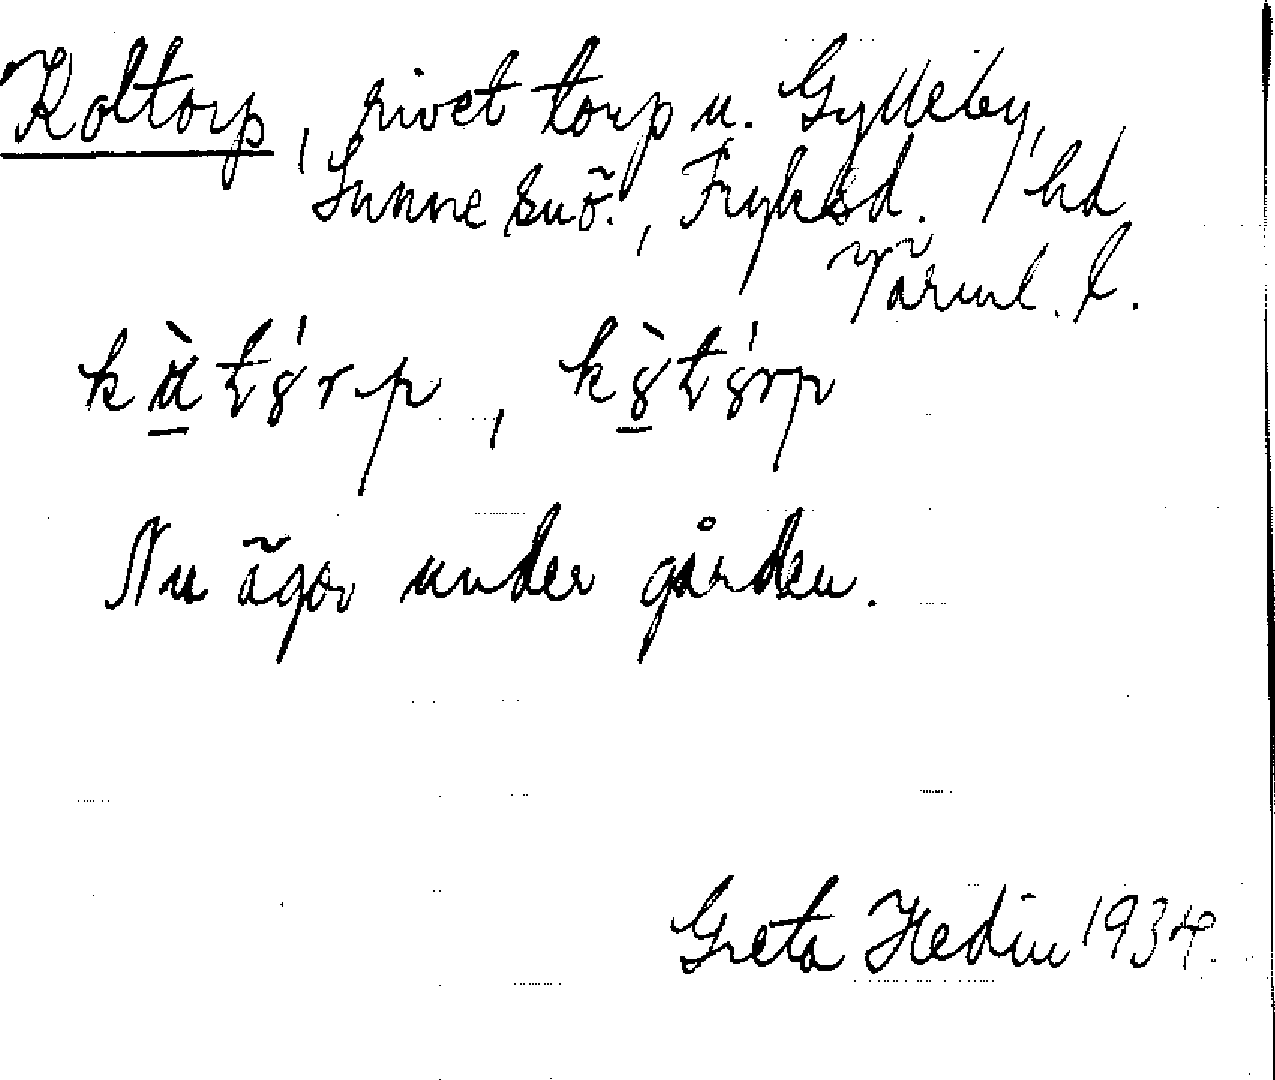 Koltorp, rivet torp u. Gylleby,
Sunne snö., Fryksd. hd
Värml. l.
Nu ägor under gården.
Greta Hedin 1934.